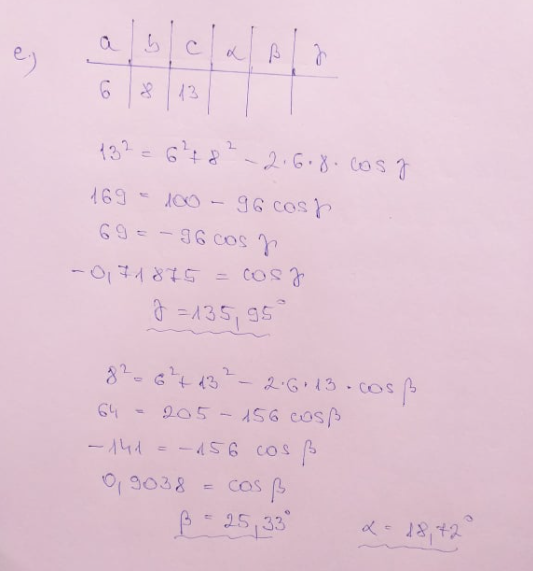 e.) a b c α β γ
6 8 13
13² = 6² + 8² - 2·6·8· cos γ
169 = 100 - 96 cos γ
69 = -96 cos γ
-0,71875 = cos γ
γ = 135,95°
8² = 6² + 13² - 2·6·13 · cos β
64 = 205 - 156 cos β
-141 = -156 cos β
0,9038 = cos β
β = 25,33° α = 18,72°